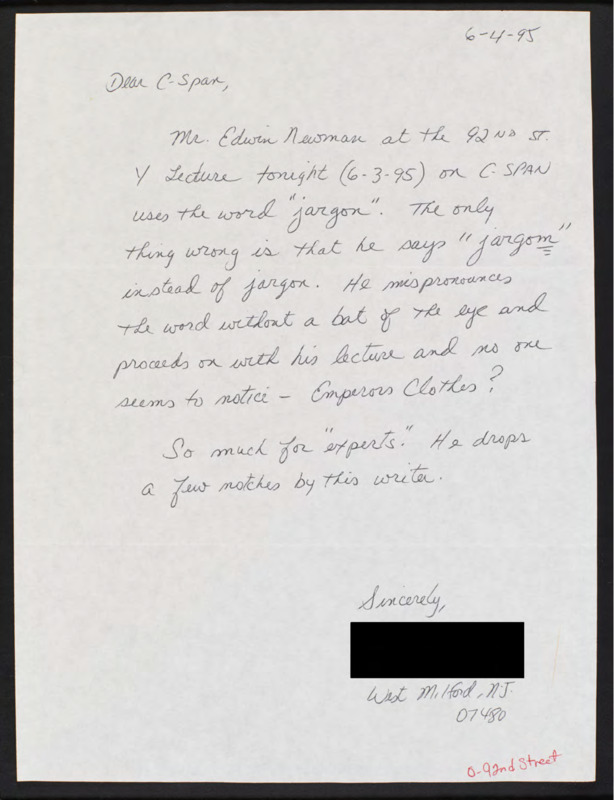 6-4-95
Dear C-Span,
Mr. Edwin Newman at the 92ND ST.
Y Lecture tonight (6-3-95) on C-SPAN
uses the word "jargon". The only
thing wrong is that he says "jargom"
instead of jargon. He mispronounces
the word without a bat of the eye and
proceeds on with his lecture and no one
seems to notice - Emperors Clothes?
So much for "experts." He drops
a few notches by this writer.
Sincerely,
West Milford, N.J.
07480
0-92nd Street